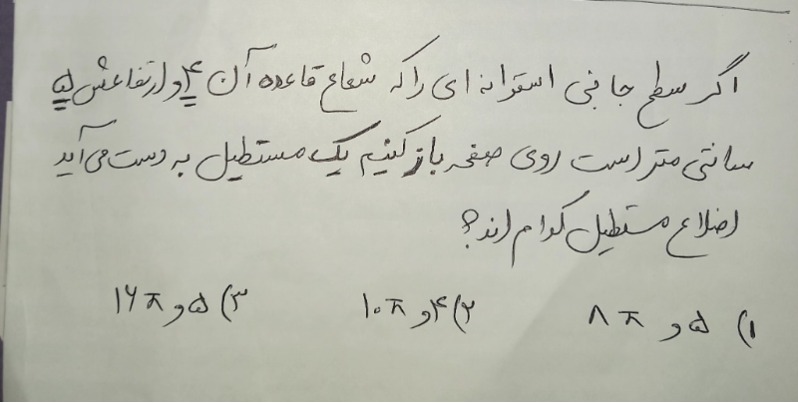 اگر سطح جانبی استوانه‌ای را که شعاع قاعده آن ۴ و ارتفاعش ۵
سانتی متر است روی صفحه باز کنیم یک مستطیل به دست می‌آید
اضلاع مستطیل کدام اند؟
۱) ۵ و ۸π ۲) ۴ و ۱۰π ۳) ۵ و ۱۶π